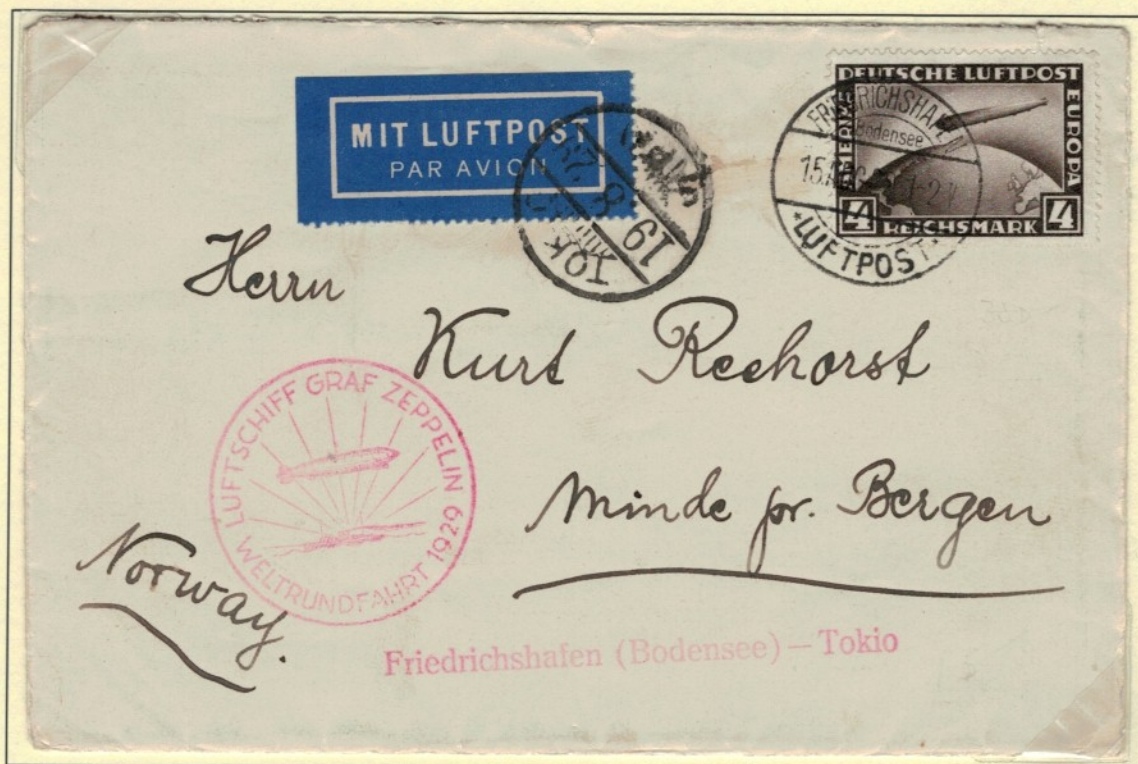 MIT LUFTPOST
PAR AVION
DEUTSCHE LUFTPOST
EUROPA
4 REICHSMARK 4
FRIEDRICHSHAFEN
Bodensee
*LUFTPOST
19
8
TOK
Herrn
Kurt Reehorst
Minde pr. Bergen
Norway.
LUFTSCHIFF GRAF ZEPPELIN
WELTRUNDFAHRT 1929
Friedrichshafen (Bodensee) – Tokio